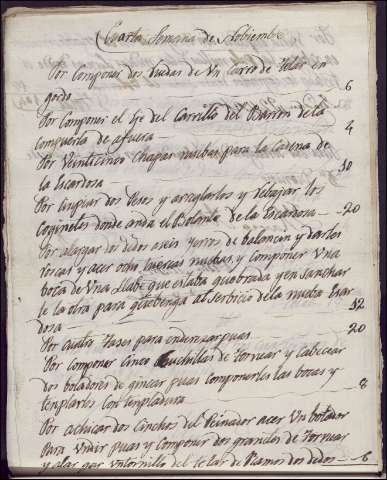 Cuarta Semana de Nobiembre
Por Componer dos Ruedas de Un Carro de Telar en
gordo — 6
Por Componer el Eje del Carrillo del Barron de la
Compuerta de afuera — 4
Por Veinticinco Chapas nuebas para la Cadena de
la Escardosa — 30
Por limpiar dos Pesos y arreglarlos y Rebajar los
Coginetes donde anda el Bolante de la Escardosa — 20
Por alargar los dedos a seis yerros de balancin y darles
roscas y acer ocho tuercas nuebas, y Componer Una
boca de Una Llabe que estaba quebrada y ensanchar
le la otra para que benga al Serbicio de la nueba Escar
dosa — 32
Por Cuatro para enderezar puas — 20
Por Componer Cinco Cuchillos de tornear y Cabecear
dos boladores de yncar puas Componerles las bocas y
templarlos Con templadura — 8
Por achicar dos Cinchos del Peinador acer Un botador
Para Undir puas y Componer dos granetes de tornear
y alargar Un tornillo del telar de Ramos dos dedos — 6